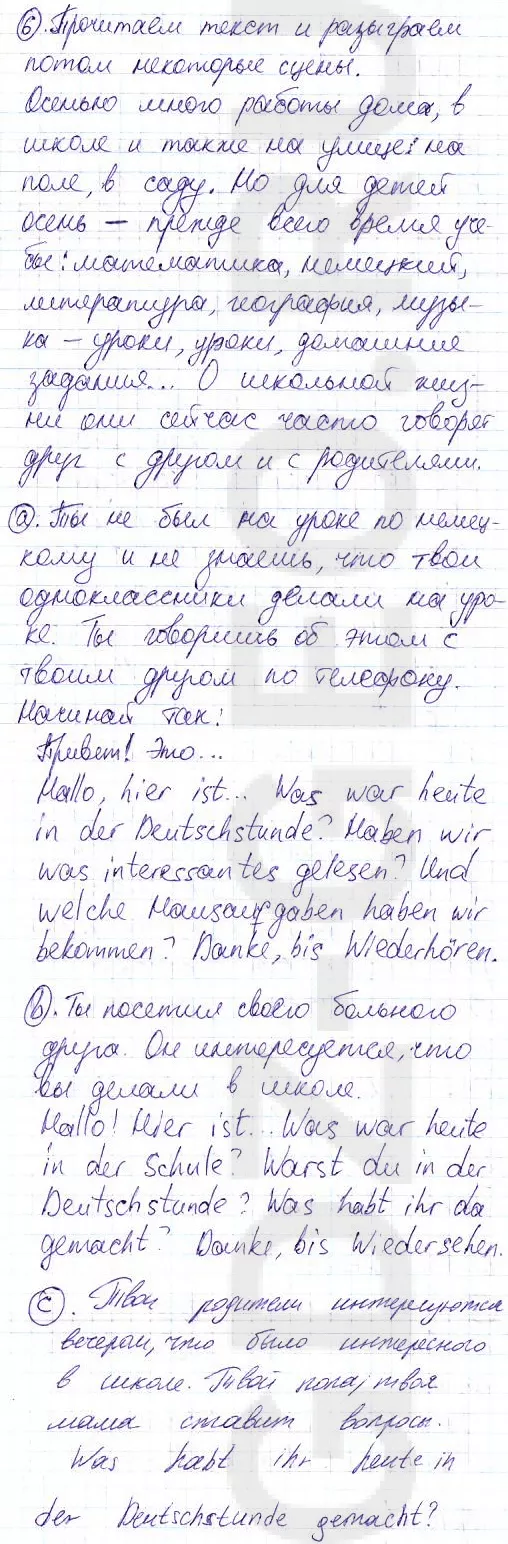 6. Прочитаем текст и разыграем
потом некоторые сцены.
Осенью много работы дома, в
школе и также на улице: на
поле, в саду. Но для детей
осень – прежде всего время уче-
бы: математика, немецкий,
литература, география, музы-
ка – уроки, уроки, домашние
задания... О школьной жиз-
ни они сейчас часто говорят
друг с другом и с родителями.
a. Ты не был на уроке по немец-
кому и не знаешь, что твои
одноклассники делали на уро-
ке. Ты говоришь об этом с
твоим другом по телефону.
Начинай так:
Привет! Это...
Hallo, hier ist... Was war heute
in der Deutschstunde? Haben wir
was interessantes gelesen? Und
welche Hausaufgaben haben wir
bekommen? Danke, bis Wiederhören.
b. Ты посетил своего больного
друга. Он интересуется, что
вы делали в школе.
Hallo! Hier ist... Was war heute
in der Schule? Warst du in der
Deutschstunde? Was habt ihr da
gemacht? Danke, bis Wiedersehen.
c. Твои родители интересуются
вечером, что было интересного
в школе. Твой папа/твоя
мама ставит вопросы.
Was habt ihr heute in
der Deutschstunde gemacht?
GDZ-GEO.RU